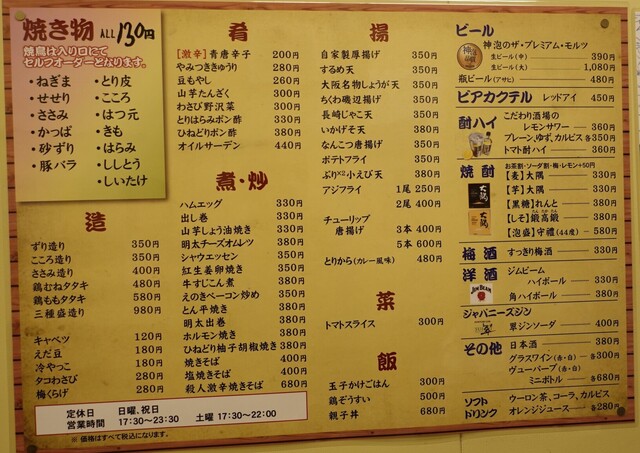 焼き物 ALL130円
焼鳥は入り口にて
セルフオーダーとなります。
・ねぎま ・とり皮
・せせり ・こころ
・ささみ ・はつ元
・かっぱ ・きも
・砂ずり ・はらみ
・豚バラ ・ししとう
・しいたけ
造
ずり造り 350円
こころ造り 350円
ささみ造り 400円
鶏むねタタキ 480円
鶏ももタタキ 580円
三種盛造り 980円
キャベツ 120円
えだ豆 180円
冷やっこ 180円
タコわさび 280円
梅くらげ 280円
定休日 日曜、祝日
営業時間 17:30〜23:30 土曜 17:30〜22:00
※価格はすべて税込になります。
肴
[激辛]青唐辛子 200円
やみつききゅうり 280円
豆もやし 260円
山芋たんざく 300円
わさび野沢菜 300円
とりはらみポン酢 330円
ひねどりポン酢 380円
オイルサーデン 440円
煮・炒
ハムエッグ 330円
出し巻 330円
山芋しょう油焼き 330円
明太チーズオムレツ 380円
シャウエッセン 380円
紅生姜卵焼き 380円
牛すじこん煮 380円
えのきベーコン炒め 350円
とん平焼き 380円
明太出巻 380円
ホルモン焼き 380円
ひねどり柚子胡椒焼き 380円
焼きそば 400円
塩焼きそば 400円
殺人激辛焼きそば 680円
揚
自家製厚揚げ 350円
するめ天 350円
大阪名物しょうが天 350円
ちくわ磯辺揚げ 350円
長崎じゃこ天 350円
いかげそ天 380円
なんこつ唐揚げ 350円
ポテトフライ 350円
ぷり×2小えび天 380円
アジフライ 1尾 250円
2尾 400円
チューリップ
唐揚げ 3本 400円
5本 600円
とりから(カレー風味) 480円
菜
トマトスライス 300円
飯
玉子かけごはん 300円
鶏ぞうすい 500円
親子丼 680円
ビール
神泡のザ・プレミアム・モルツ
生ビール(中) 390円
生ビール(大) 1,080円
瓶ビール(アサヒ) 480円
ビアカクテル レッドアイ 450円
酎ハイ こだわり酒場の
レモンサワー 360円
プレーン、ゆず、カルピス 各350円
トマト酎ハイ 360円
焼酎 お茶割・ソーダ割・梅・レモン+50円
【麦】大隅 380円
【芋】大隅 380円
【黒糖】れんと 380円
【しそ】鍛高鍛 380円
【泡盛】守禮(44度) 580円
梅酒 すっきり梅酒 330円
洋酒 ジムビーム
ハイボール 330円
JIM BEAM
角ハイボール 380円
ジャパニーズジン
翠ジンソーダ 400円
その他 日本酒 380円
グラスワイン(赤・白) 各300円
ヴューパープ(赤・白)
ミニボトル 680円
ソフト
ドリンク
ウーロン茶、コーラ、カルピス
オレンジジュース 各280円